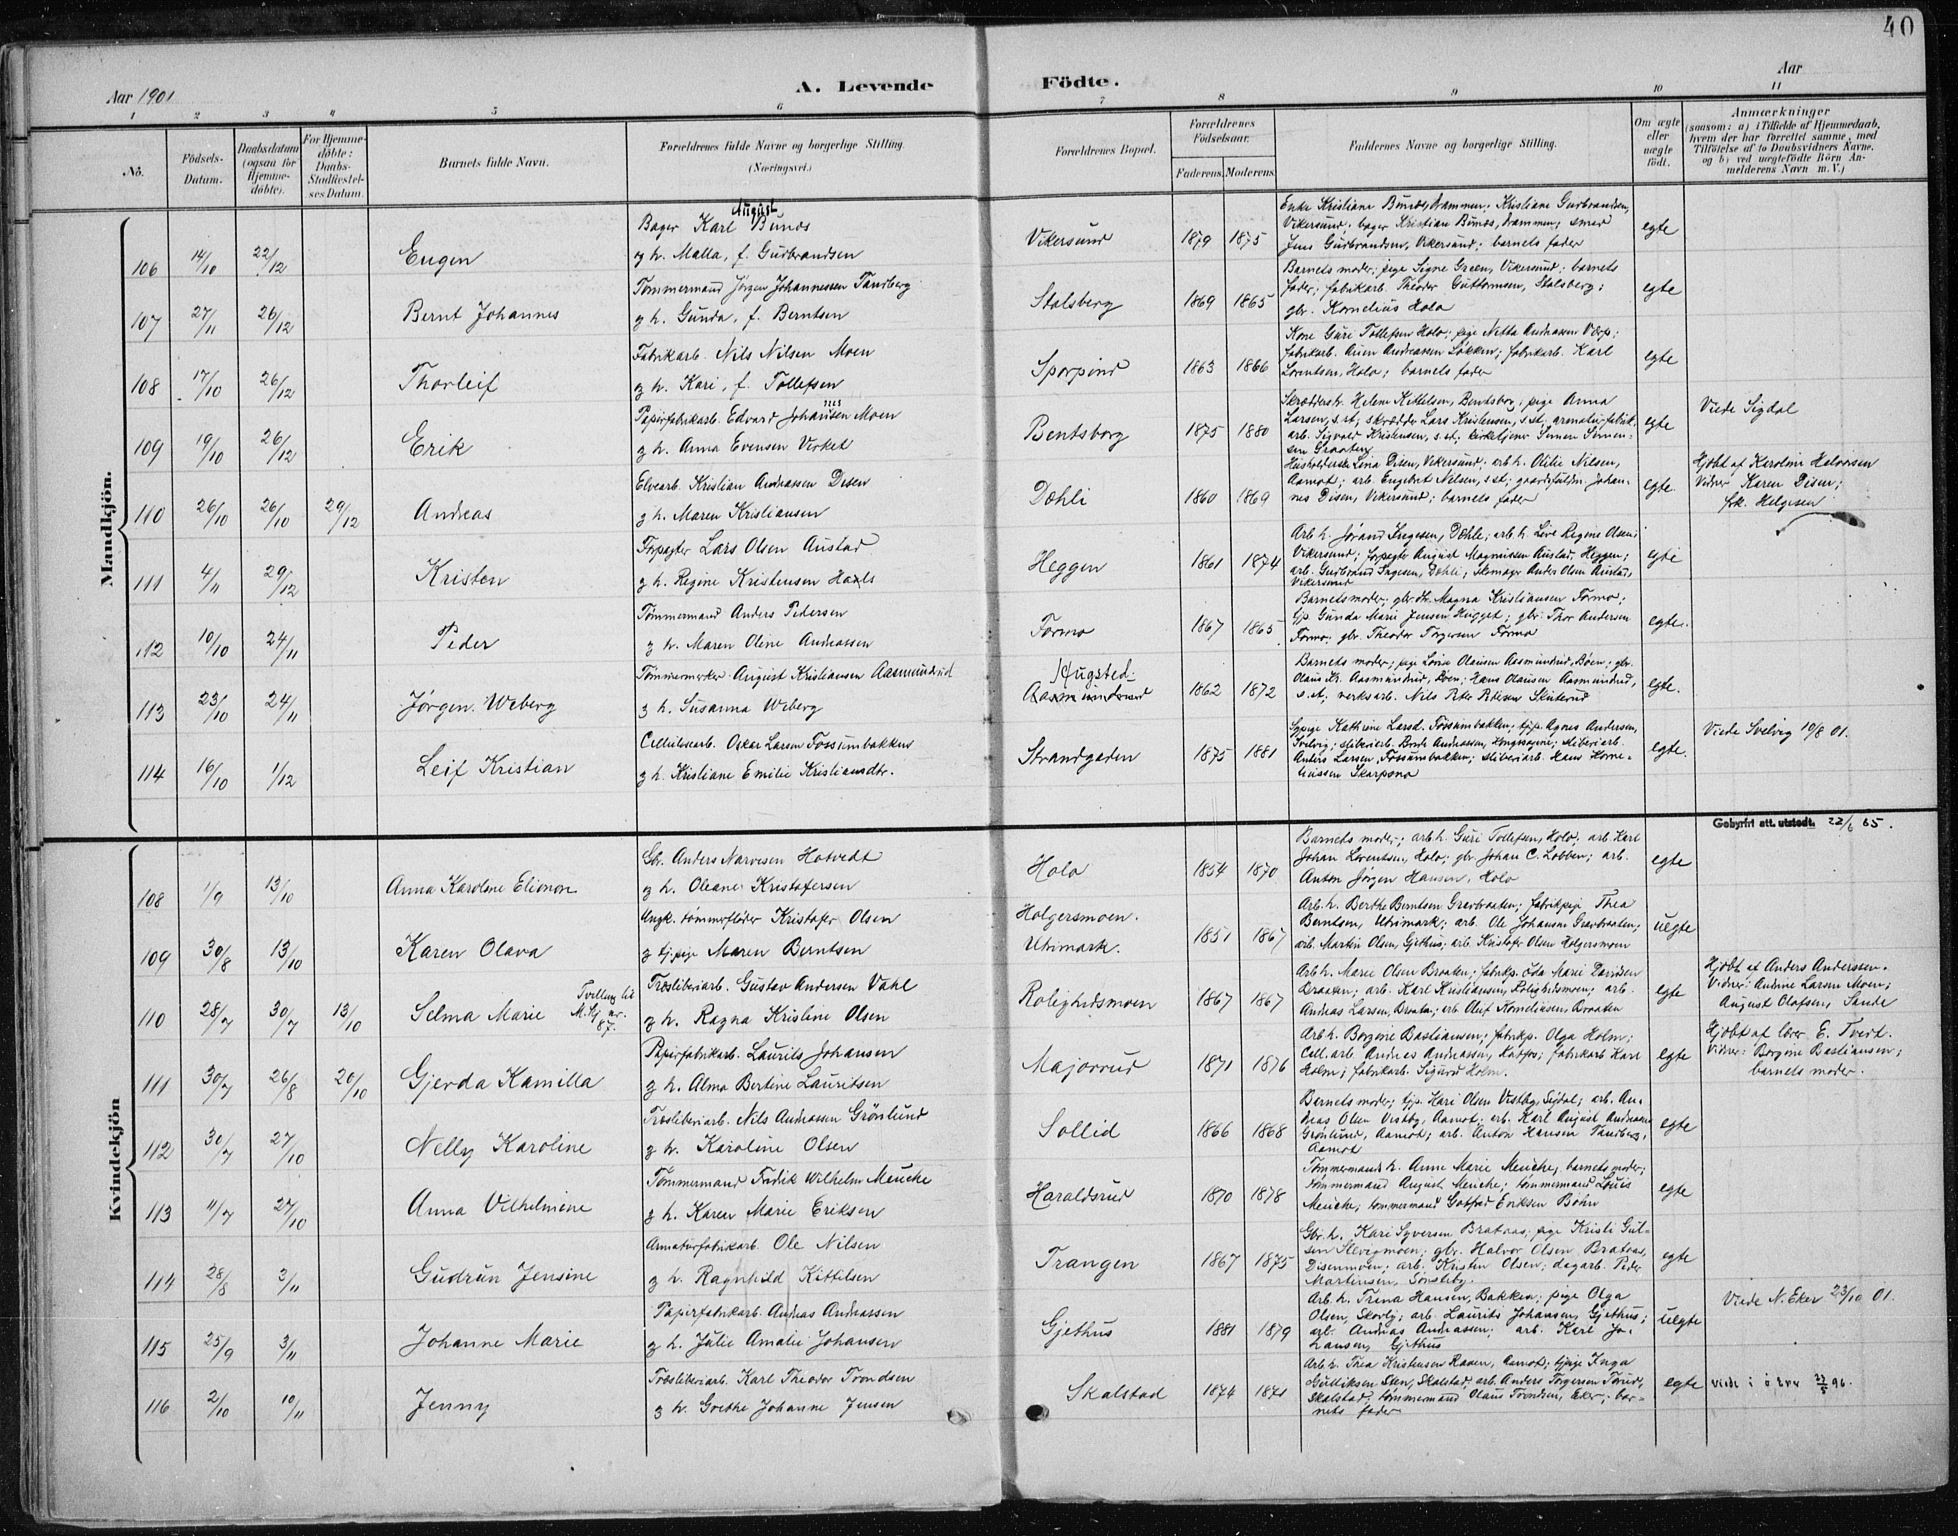 40
Aar 1901
A. Levende
Födte.
Aar
1 2 3 4 5 6 7 8 9 10 11
No.
Födsels-Datum.
Daabsdatum (ogsaa for Hjemme-döbte).
For Hjemme-döbte: Daabs-Stadfæstel-ses Datum.
Barnets fulde Navn.
Forældrenes fulde Navne og borgerlige Stilling.
(Næringsvei.)
Forældrenes Bopæl.
Forældrenes Födselsaar.
Faderens. Moderens.
Faddernes Navne og borgerlige Stilling.
Om ægte eller uægte födt.
Anmærkninger
(saasom: a) i Tilfælde af Hjemmedaab,
hvem der har forrettet samme, med
Tilföielse af to Daabsvidners Navne,
og b) ved uægtefödte Börn An-
melderens Navn m. V.)
Mandkjön.
106 14/10 22/12 Eugen
Bager Karl August Bunds
og h. Malla, f. Gudbrandsen
Vikersund 1879 1875
Enke Kristiane Bunds, Drammen; Kristiane Gudbrandsen,
Vikersund; bager Kristian Bunds, Drammen; smed
Jens Gudbrandsen, Vikersund; barnets fader
egte
107 27/11 26/12 Bernt Johannes
Tømmermand Jørgen Johannessen Tandberg
g h. Gunda, f. Berntsen
Stalsberg 1869 1865
Barnets moder; pige Signe Green, Vikersund; barnets
fader; fabrikarb. Theodor Guttormsen, Stalsberg;
gbr. Kornelius Holo
egte
108 17/10 26/12 Thorleif
Fabrikarb. Nils Nilsen Moen
g h. Kari, f. Tollefsen
Sporpind 1863 1866
Kone Guri Tollefsen Holo; pige Netta Andreassen
fabrikarb. Andreassen Løkken; fabrikarb. Karl
Lorentsen, Holo; barnets fader
egte
109 19/10 26/12 Erik
Papirfabrikarb. Edvard Johansen Moen
g h. Anna Evensen Virket
Bentsborg 1875 1880
Helene Kittelsen, Bentsborg; pige Anna
Larsen, s.st; skrædder Lars Kristensen, s.st; armaturfabrik-
arb. Sigvald Kristensen, s.st; kirketjener Simen Simen-
sen Graaberg
egte
Viede Sigdal
110 26/10 26/10 29/12 Andreas
Elvearb. Kristian Andreassen Disen
g h. Maren Kristiansen
Døhli 1860 1869
Lina Disen, Vikersund; arb. h. Otilie Nilsen,
Aamot; arb. Engebret Nilsen, s.st; Johan-
nes Disen, Vikersund; barnets fader
egte
Hjdbt af Karoline Halvorsen
Vidner Karen Disen;
frk. Helgesen
111 4/11 29/12 Kristen
Forpagter Lars Olsen Austad
g h. Regine Kristensen
Heggen 1861 1874
Arb. h. Jørand Ingesen, Døhli; arb. h. Regine Olsen,
Vikersund; forpagter August Magnussen Austad, Heggen;
arb. Gudbrand Ingesen, Døhli; skomager Anders Olsen Austad,
Vikersund
egte
112 10/10 24/11 Peder
Tømmermand Anders Pedersen
g h. Maren Oline Andreassen
Formo 1867 1865
Barnets moder; gbr. dtr. Magna Kristiansen Formo;
tjp. Gunda Marie Jensen Hugget; gbr. Thor Andersen
Formo; gbr. Theodor Torgersen Formo
egte.
113 23/10 24/11 Jørgen Weberg
Tømmermerker August Kristiansen Aasmundrud
g h. Susanna Weberg
Hugsted
Aasmundrud 1862 1872
Barnets moder; pige Lovise Olausen Aasmundrud, Bøen; gbr.
Olaus Kr. Aasmundrud, Bøen; Hans Olausen Aasmundrud,
s.st; verksarb. Nils Peter Skuterud
egte.
114 16/10 1/12 Leif Kristian
Cellulosearb. Oskar Larsen Fossumbakken
g h. Kristiane Emilie Kristiansdtr.
Strandgaden 1875 1881
Sypige Kathrine Larsd. Fossumbakken; tjp. Agnes Andersen,
Svelvig; sliberiarb. Andreassen, sliberiarb.
Anders Larsen, Fossumbakken; sliberiarb. Hans Korne-
liussen Skarpsno
egte.
Viede Svelvig 10/8 01.
Gebyrfri att. utstedt. 22/6 65.
Kvindekjön
108 1/9 13/10 Anna Karoline Elionor
Gb. Anders Narvesen Hotvedt
g h. Oleane Kristofersen
Holo 1854 1870
Barnets moder; arb. h. Guri Tollefsen, Holo; arb. Karl
Johan Lorentsen, Holo; gbr. Johan C. Lobben; arb.
Anton Jørgen Hansen, Holo
egte
109 30/8 13/10 Karen Olava
Ungk. tømmerfløder Kristofer Olsen
g tj. pige Maren Berntsen
Holgersmoen.
Utvimark. 1851 1867
Arb. h. Berthe Berntsen Grævbraaten; fabrikpige Thea
Berntsen, Utvimark; arb. Ole Johansen Grævbraaten;
arb. Martin Olsen, Gjethus; arb. Kristofer Olsen Holgersmoen
uegte
110 28/7 30/7 13/10 Selma Marie
Tvilling til M.kj. nr. 87.
Træsliberiarb. Gustav Andersen Vahl
g h. Ragna Kristine Olsen
Rolighedsmoen 1867 1867
Arb. h. Marie Olsen Braaten; fabrikp. Oda Marie Davidsen
Braaten; arb. Karl Kristiansen, Rolighedsmoen; arb.
Andreas Larsen, Braaten; arb. Oluf Korneliussen, Braaten
egte
Hjdbt af Anders Andersen.
Vidner: Andrine Larsen Moen;
August Olafsen, Sande
111 30/7 26/8 20/10 Gjerda Kamilla
Papirfabrikarb. Laurits Johansen
g h. Alma Bertine Lauritsen
Majorrud 1871 1876
Arb. h. Borgine Bastiansen; fabrikp. Olga Holm;
Cell. arb. Andreas Andreassen, fabrikarb. Karl
Holm; fabrikarb. Sigurd Holm.
egte
Hjdbt af lærer E. Tveit.
Vidner: Borgine Bastiansen;
barnets moder.
112 30/7 27/10 Nelly Karoline
Træsliberiarb. Nils Andreassen Grönlund
g h. Karoline Olsen
Sollid 1866 1868
Barnets moder; tjp. Kari Olsen Vestby, Sigdal; arb. An-
dreas Olsen Vestby, Aamot; arb. Karl August Andreassen
Grønlund, Aamot; arb. Anton Hansen Tandberg,
Aamot
egte
113 11/7 27/10 Anna Vilhelmine
Tømmermand Fredrik Wilhelm Meucke
g h. Karen Marie Eriksen
Haraldsrud 1870 1878
Tømmermands h. Anne Marie Meucke, barnets moder;
tømmermand August Meucke; tømmermand Louis
Meucke; tømmermand Gotfred Eriksen Böhn
egte
114 28/8 3/11 Gudrun Jensine
Armaturfabrikarb. Ole Nilsen
g h. Ragnhild Kittelsen
Trangen 1867 1875
Gbr. h. Kari Syversen Brataas; pige Kristi Gul-
sen Slevigmoen; gbr. Halvor Olsen Brataas,
Disenmoen; arb. Kristen Olsen; dagarb. Peder
Martinsen, Sønsteby.
egte
115 25/9 3/11 Johanne Marie
Papirfabrikarb. Andreas Andreassen
g h. Julie Amalie Johansen
Gjethus 1881 1879
Arb. h. Trina Hansen, Bakken; pige Olga
Olsen, Skovly; arb. Laurits Johansen, Gjethus;
arb. Andreas Andreassen; arb. Karl Jo-
hansen, Gjethus
uegte
Viede N. Eker 23/10 01.
116 2/10 10/11 Jenny
Træsliberiarb. Karl Theodor Trondsen
g h. Grethe Johanne Jensen
Skalstad 1874 1871
Arb. h. Thea Kristensen Raaen, Aamot; tjpige Inga
Gulliksen Skalstad; arb. Anders Torgersen
Skalstad; tømmermand Olaus Trondsen, Eker; bar-
nets fader
egte
viede i 96.